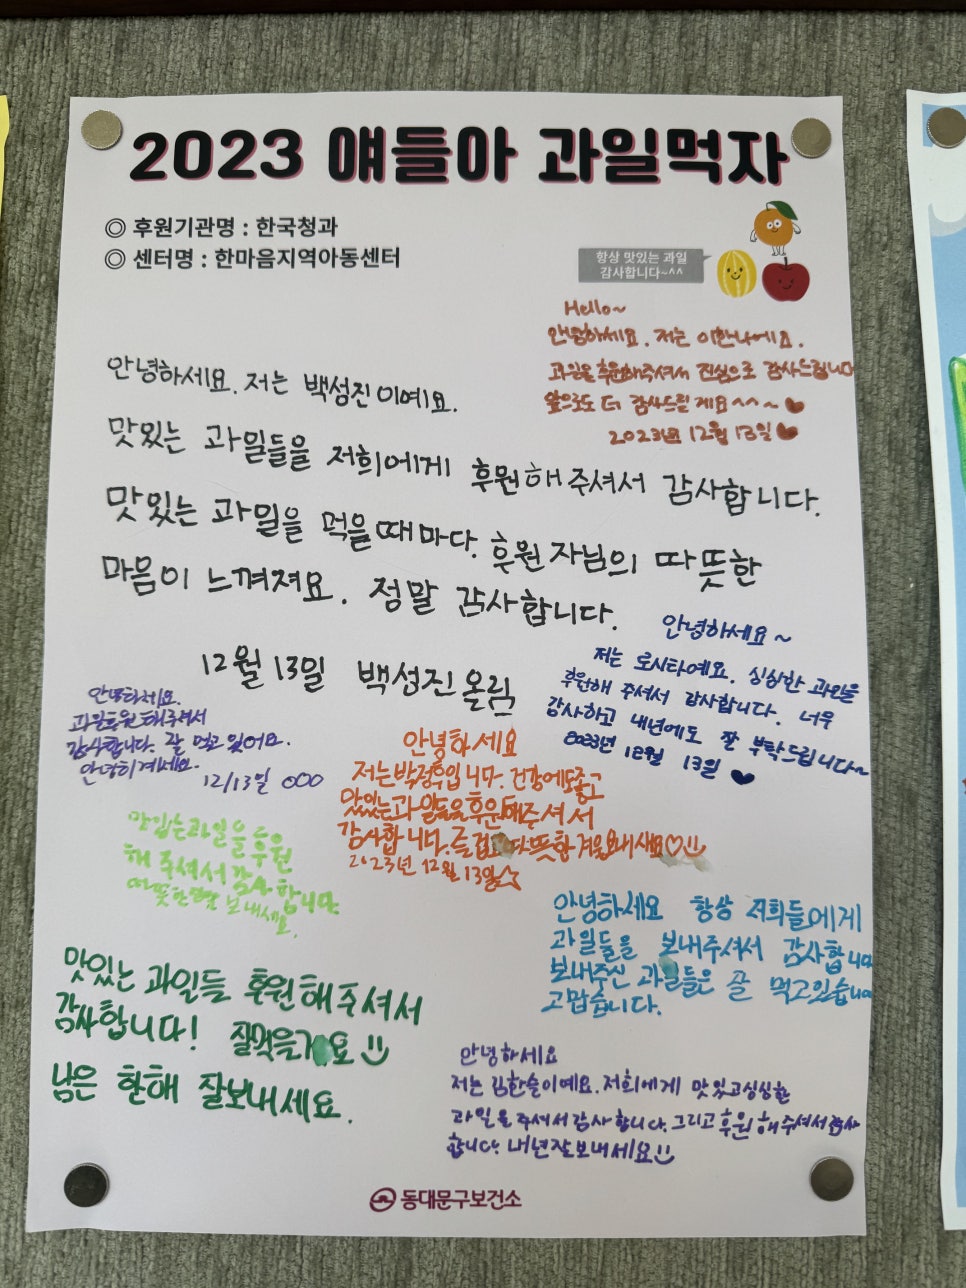 2023 얘들아 과일먹자
◎ 후원기관명 : 한국청과
◎ 센터명 : 한마음지역아동센터
항상 맛있는 과일
감사합니다~^^
Hello~
안녕하세요. 저는 이한나에요.
과일을 후원해주셔서 진심으로 감사드립니다
앞으로도 더 감사드릴게요^^~♥
2023년 12월 13일♥
안녕하세요. 저는 백성진이예요.
맛있는 과일들을 저희에게 후원해주셔서 감사합니다.
맛있는 과일을 먹을때마다. 후원자님의 따뜻한
마음이 느껴져요. 정말 감사합니다.
12월 13일 백성진올림
안녕하세요~
저는 로시타예요. 싱싱한 과일을
후원해 주셔서 감사합니다. 너무
감사하고 내년에도 잘 부탁드립니다~
2023년 12월 13일 ♥
안녕하세요.
과일후원 해주셔서
감사합니다. 잘 먹고 있어요.
안녕히계세요.
12/13일 ㅇㅇㅇ
안녕하세요
저는박정후입니다. 건강에도좋고
맛있는과일들을후원해주셔서
감사합니다. 즐겁고따뜻한겨울보내세요♡
2023년 12월 13일☆
맛있는과일을후원
해 주셔서감사합니다
따뜻한겨울 보내세요.
안녕하세요 항상 저희들에게
과일들을 보내주셔서 감사합니다
보내주신 과일들은 잘 먹고있습니다
고맙습니다.
맛있는 과일들 후원해주셔서
감사합니다! 잘먹을게요
남은 한해 잘보내세요.
안녕하세요
저는 김한슬이예요. 저희에게 맛있고싱싱한
과일을주셔서감사합니다. 그리고후원해주셔서감사
합니다. 내년잘보내세요
동대문구보건소